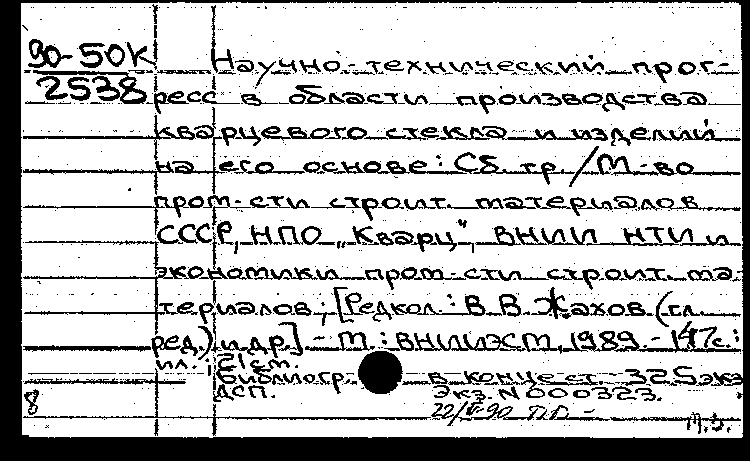 90-50К Научно-технический прог-
2538 ресс в области производства
кварцевого стекла и изделий
на его основе: Сб. тр. / М-во
пром-сти строит. материалов
СССР, НПО „Кварц", ВНИИ НТИ и
экономики пром-сти строит. ма-
териалов; [Редкол.: В. В. Жахов (гл.
ред.) и др.] - М.: ВНИИЭСМ, 1989. - 147 с.:
ил.; 21 см.
библиогр. в конце ст. - 325 экз
ДСП. Экз. N 000323.
8 22/ -90